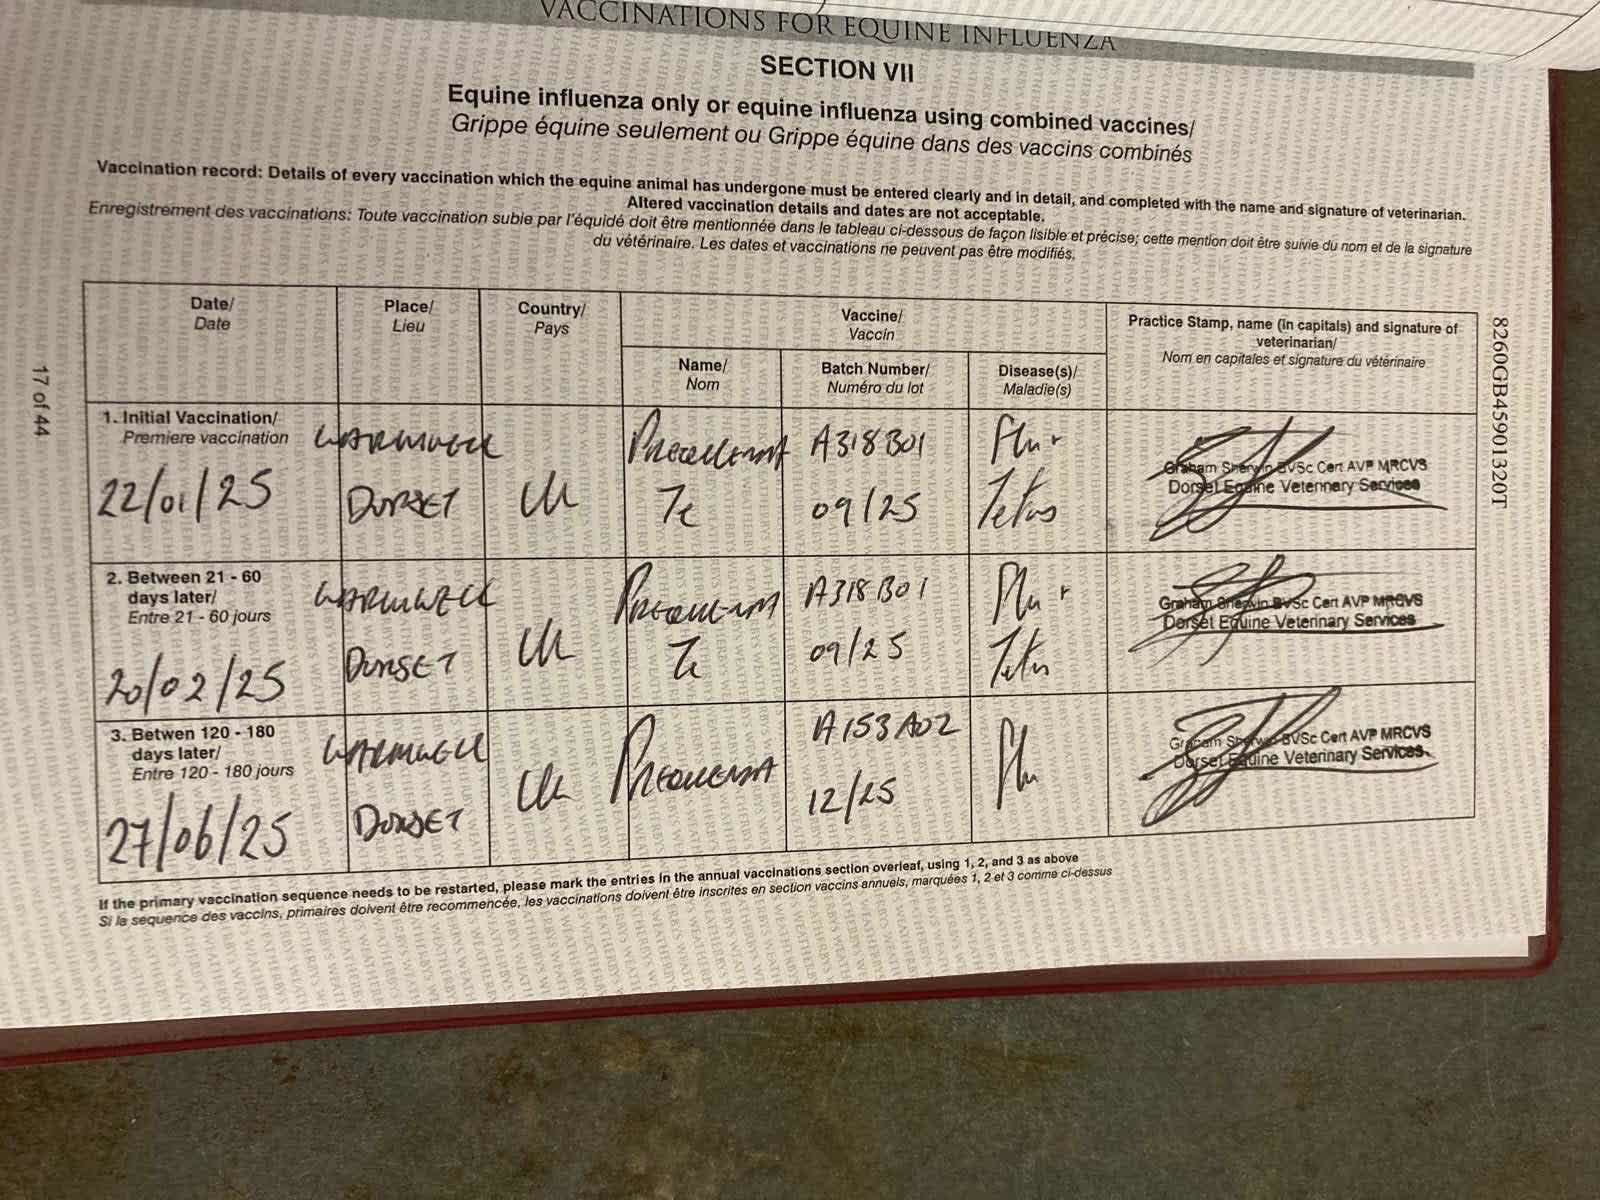 VACCINATIONS FOR EQUINE INFLUENZA
SECTION VII
Equine influenza only or equine influenza using combined vaccines/
Grippe équine seulement ou Grippe équine dans des vaccins combinés
Vaccination record: Details of every vaccination which the equine animal has undergone must be entered clearly and in detail, and completed with the name and signature of veterinarian.
Altered vaccination details and dates are not acceptable.
Enregistrement des vaccinations: Toute vaccination subie par l'équidé doit être mentionnée dans le tableau ci-dessous de façon lisible et précise; cette mention doit être suivie du nom et de la signature
du vétérinaire. Les dates et vaccinations ne peuvent pas être modifiés.
Date/
Date
Place/
Lieu
Country/
Pays
Vaccine/
Vaccin
Name/
Nom
Batch Number/
Numéro du lot
Disease(s)/
Maladie(s)
Practice Stamp, name (in capitals) and signature of
veterinarian/
Nom en capitales et signature du vétérinaire
1. Initial Vaccination/
Premiere vaccination
22/01/25
WARMWELL
DORSET
UK
Te
A318B01
09/25
Flu +
Tetus
Graham Sherwin BVSc Cert AVP MRCVS
Dorset Equine Veterinary Services
2. Between 21 - 60
days later/
Entre 21 - 60 jours
20/02/25
WARMWELL
DORSET
UK
PREQUENZA
Te
A318B01
09/25
Flu +
Tetus
Graham Sherwin BVSc Cert AVP MRCVS
Dorset Equine Veterinary Services
3. Betwen 120 - 180
days later/
Entre 120 - 180 jours
27/06/25
WARMWELL
DORSET
UK
PREQUENZA
A153A02
12/25
Flu
Graham Sherwin BVSc Cert AVP MRCVS
Dorset Equine Veterinary Services
If the primary vaccination sequence needs to be restarted, please mark the entries in the annual vaccinations section overleaf, using 1, 2, and 3 as above
Si la sequence des vaccins, primaires doivent être recommencée, les vaccinations doivent être inscrites en section vaccins annuels, marquées 1, 2 et 3 comme ci-dessus
17 of 44
8260GB45901320T